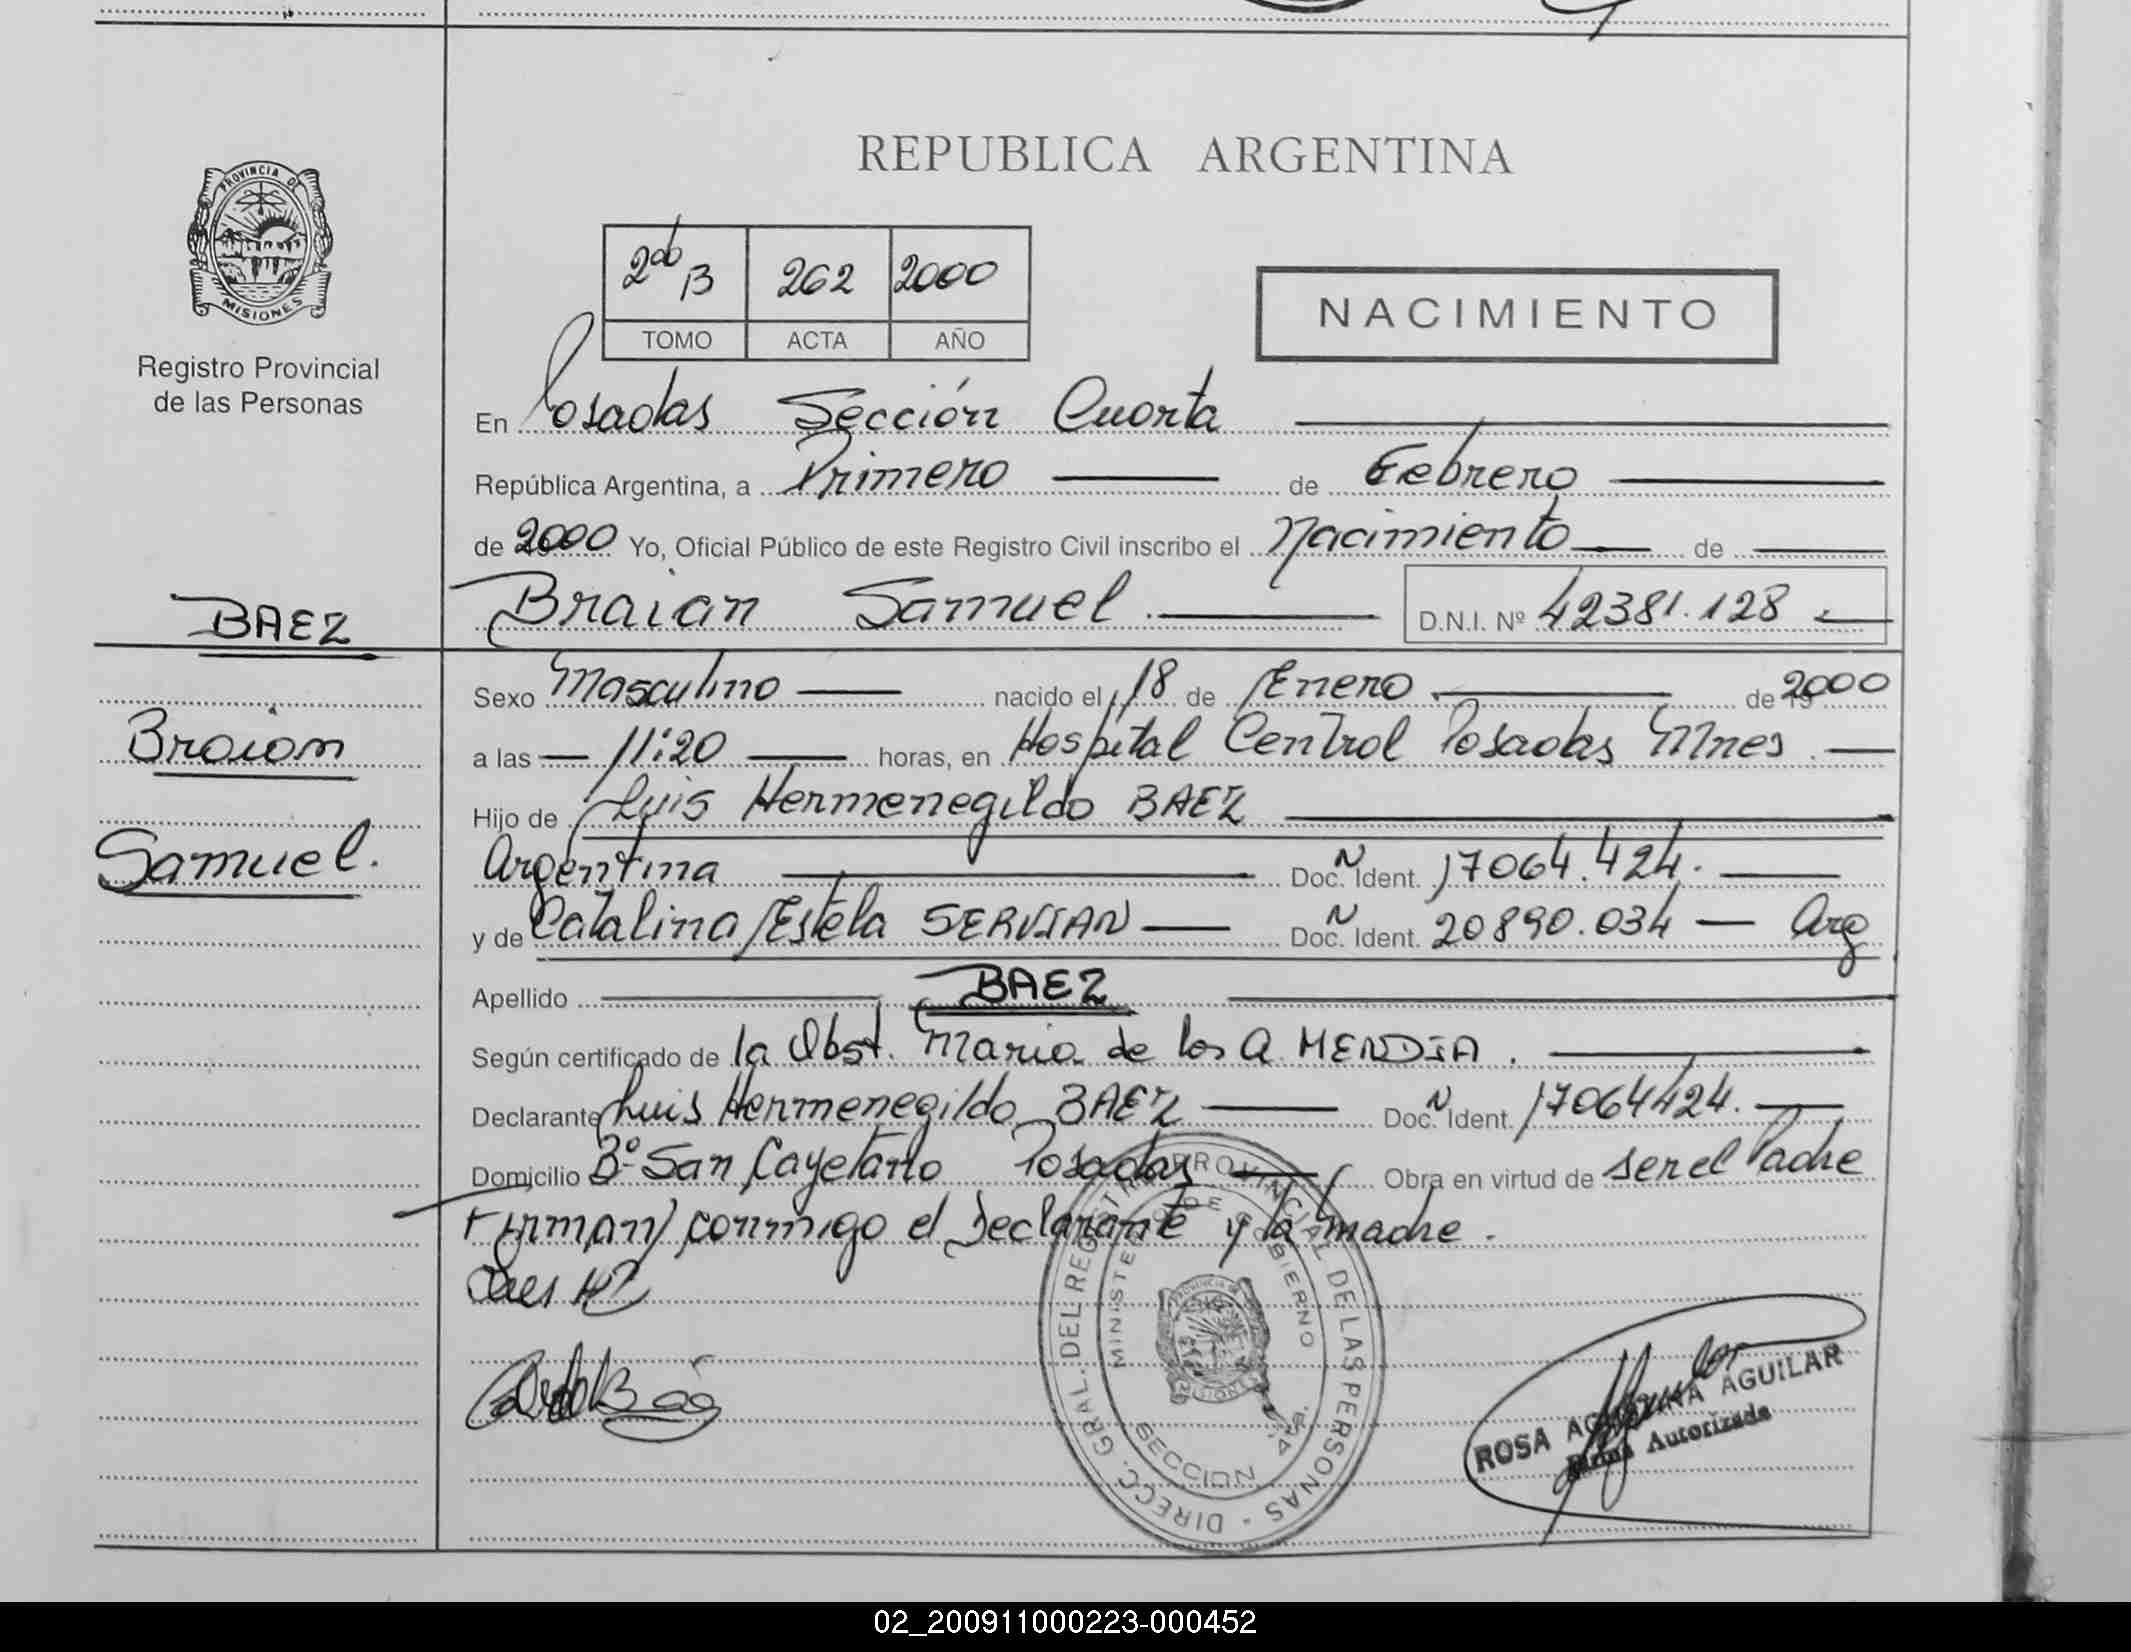 REPUBLICA ARGENTINA
PROVINCIA DE
MISIONES
Registro Provincial
de las Personas
2do B 262 2000
TOMO ACTA AÑO
NACIMIENTO
En Posadas Sección Cuarta
República Argentina, a Primero de Febrero
de 2000 Yo, Oficial Público de este Registro Civil inscribo el Nacimiento de
Braian Samuel D.N.I. Nº 42381.128
BAEZ
Braian
Samuel.
Sexo Masculino nacido el 18 de Enero de 2000
a las 11:20 horas, en Hospital Central Posadas Mnes.
Hijo de Luis Hermenegildo BAEZ
Argentina Doc. Ident. 17064.424.
y de Catalina Estela SERVIAN Doc. Ident. 20890.034 Arg
Apellido BAEZ
Según certificado de la Obst. Maria de los A MENDIA.
Declarante Luis Hermenegildo BAEZ Doc. Ident. 17064424.
Domicilio Bº San Cayetano Posadas Obra en virtud de ser el Padre
Firman conmigo el Declarante y la madre.
DIRECC. GRAL. DEL REGISTRO PROVINCIAL DE LAS PERSONAS
MINISTERIO DE GOBIERNO
MISIONES
SECCION 4ta.
ROSA AGUILAR
Firma Autorizada
02_200911000223-000452